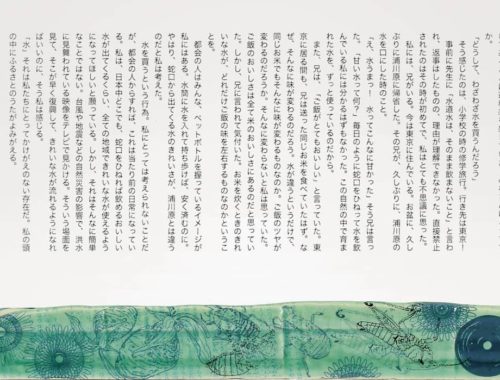 「どうして、わざわざ水を買うんだろう」
か。
そう感じたのは、小学校の時の修学旅行。行き先は東京！
事前に先生に「水道水は、そのまま飲まないこと」と言わ
れ、返事はしたものの、理由が理解できなかった。直接禁止
されたのはその時が初めてで、私はとても不思議に思った。
私は、兄がいる。今は東京に住んでいる。お盆に、久し
ぶりに浦川原に帰省した。その兄が、久しぶりに、浦川原の
水を口にした時のこと。
「え、水うまっ！　水ってこんなに甘かった」そう兄は言っ
た。「甘いって何？」毎日のように蛇口をひねって水を飲
んでいる私には分かるはずもなかった。この自然の中で育ま
れた水を、ずっと使っているのだから。
また、兄は、「ご飯がとてもおいしい」と言っていた。東
京に居る間も、兄は送った同じお米を食べていたはず。な
ぜ、そんなに味が変わるのだろう。水が違うというだけで、
同じお米でもそんなに味が変わるものなのか。ご飯のツヤが
変わるのだろうか。そんなに変わらないと私は思っていた。
ご飯のおいしさは全て米のおいしさにあるのだと思ってい
た。しかし、兄に言われて気付いた。お米を炊くときのきれ
いな水が、どれだけご飯の味を左右するものなのかというこ
とを。
都会の人はみんな、ペットボトルを握っているイメージが
私にはある。水筒に水を入れて持ち歩けば、安く済むのに。
やはり、蛇口から出てくる水のきれいさが、浦川原とは違う
のだと私は考えた。
水を買うという行為。私にとっては考えられないことだ
が、都会の人からすれば、これは当たり前の日常になってい
る。私は、日本中のどこでも、蛇口をひねれば飲めるおいしい
水が出てくるくらい、全ての地域できれいな水が使えるよう
になってほしいと願っている。しかし、それはそんなに簡単
なことではない。台風や地震などの自然災害の影響で、洪水
に見舞われている映像をテレビで見かける。そういう場面を
見て、そこが早く復興して、きれいな水が流れるようになれ
ばいいのに、そう私は感じる。
「水」それは私たちにとってかけがえのない存在だ。私の頭
の中にふるさとのうたがよみがえる。